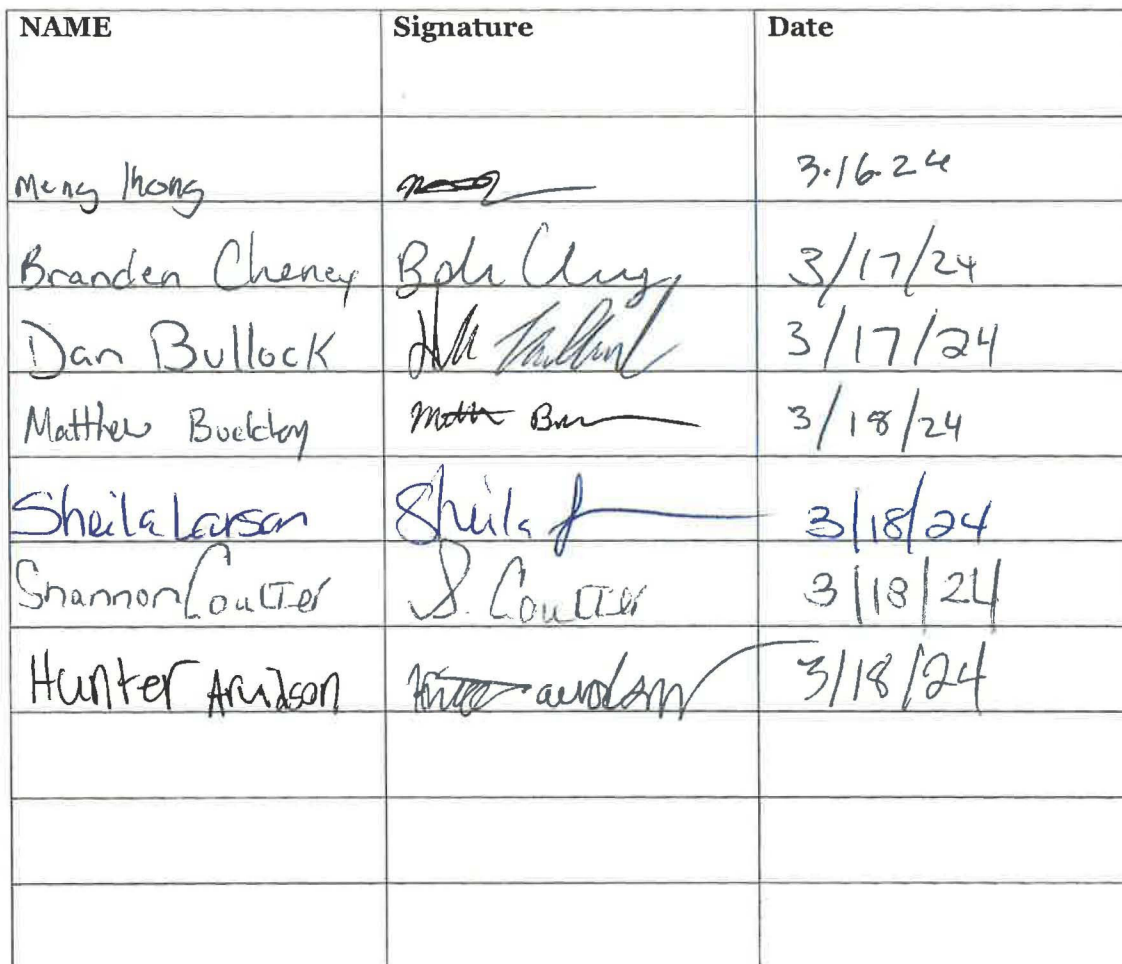 NAME Signature Date
Meng 3.16.24
Branden Cheney 3/17/24
Dan Bullock 3/17/24
Matthew 3/18/24
Sheila Larson Sheila 3/18/24
Shannon Coulter S. Coulter 3/18/24
Hunter Arvidson 3/18/24